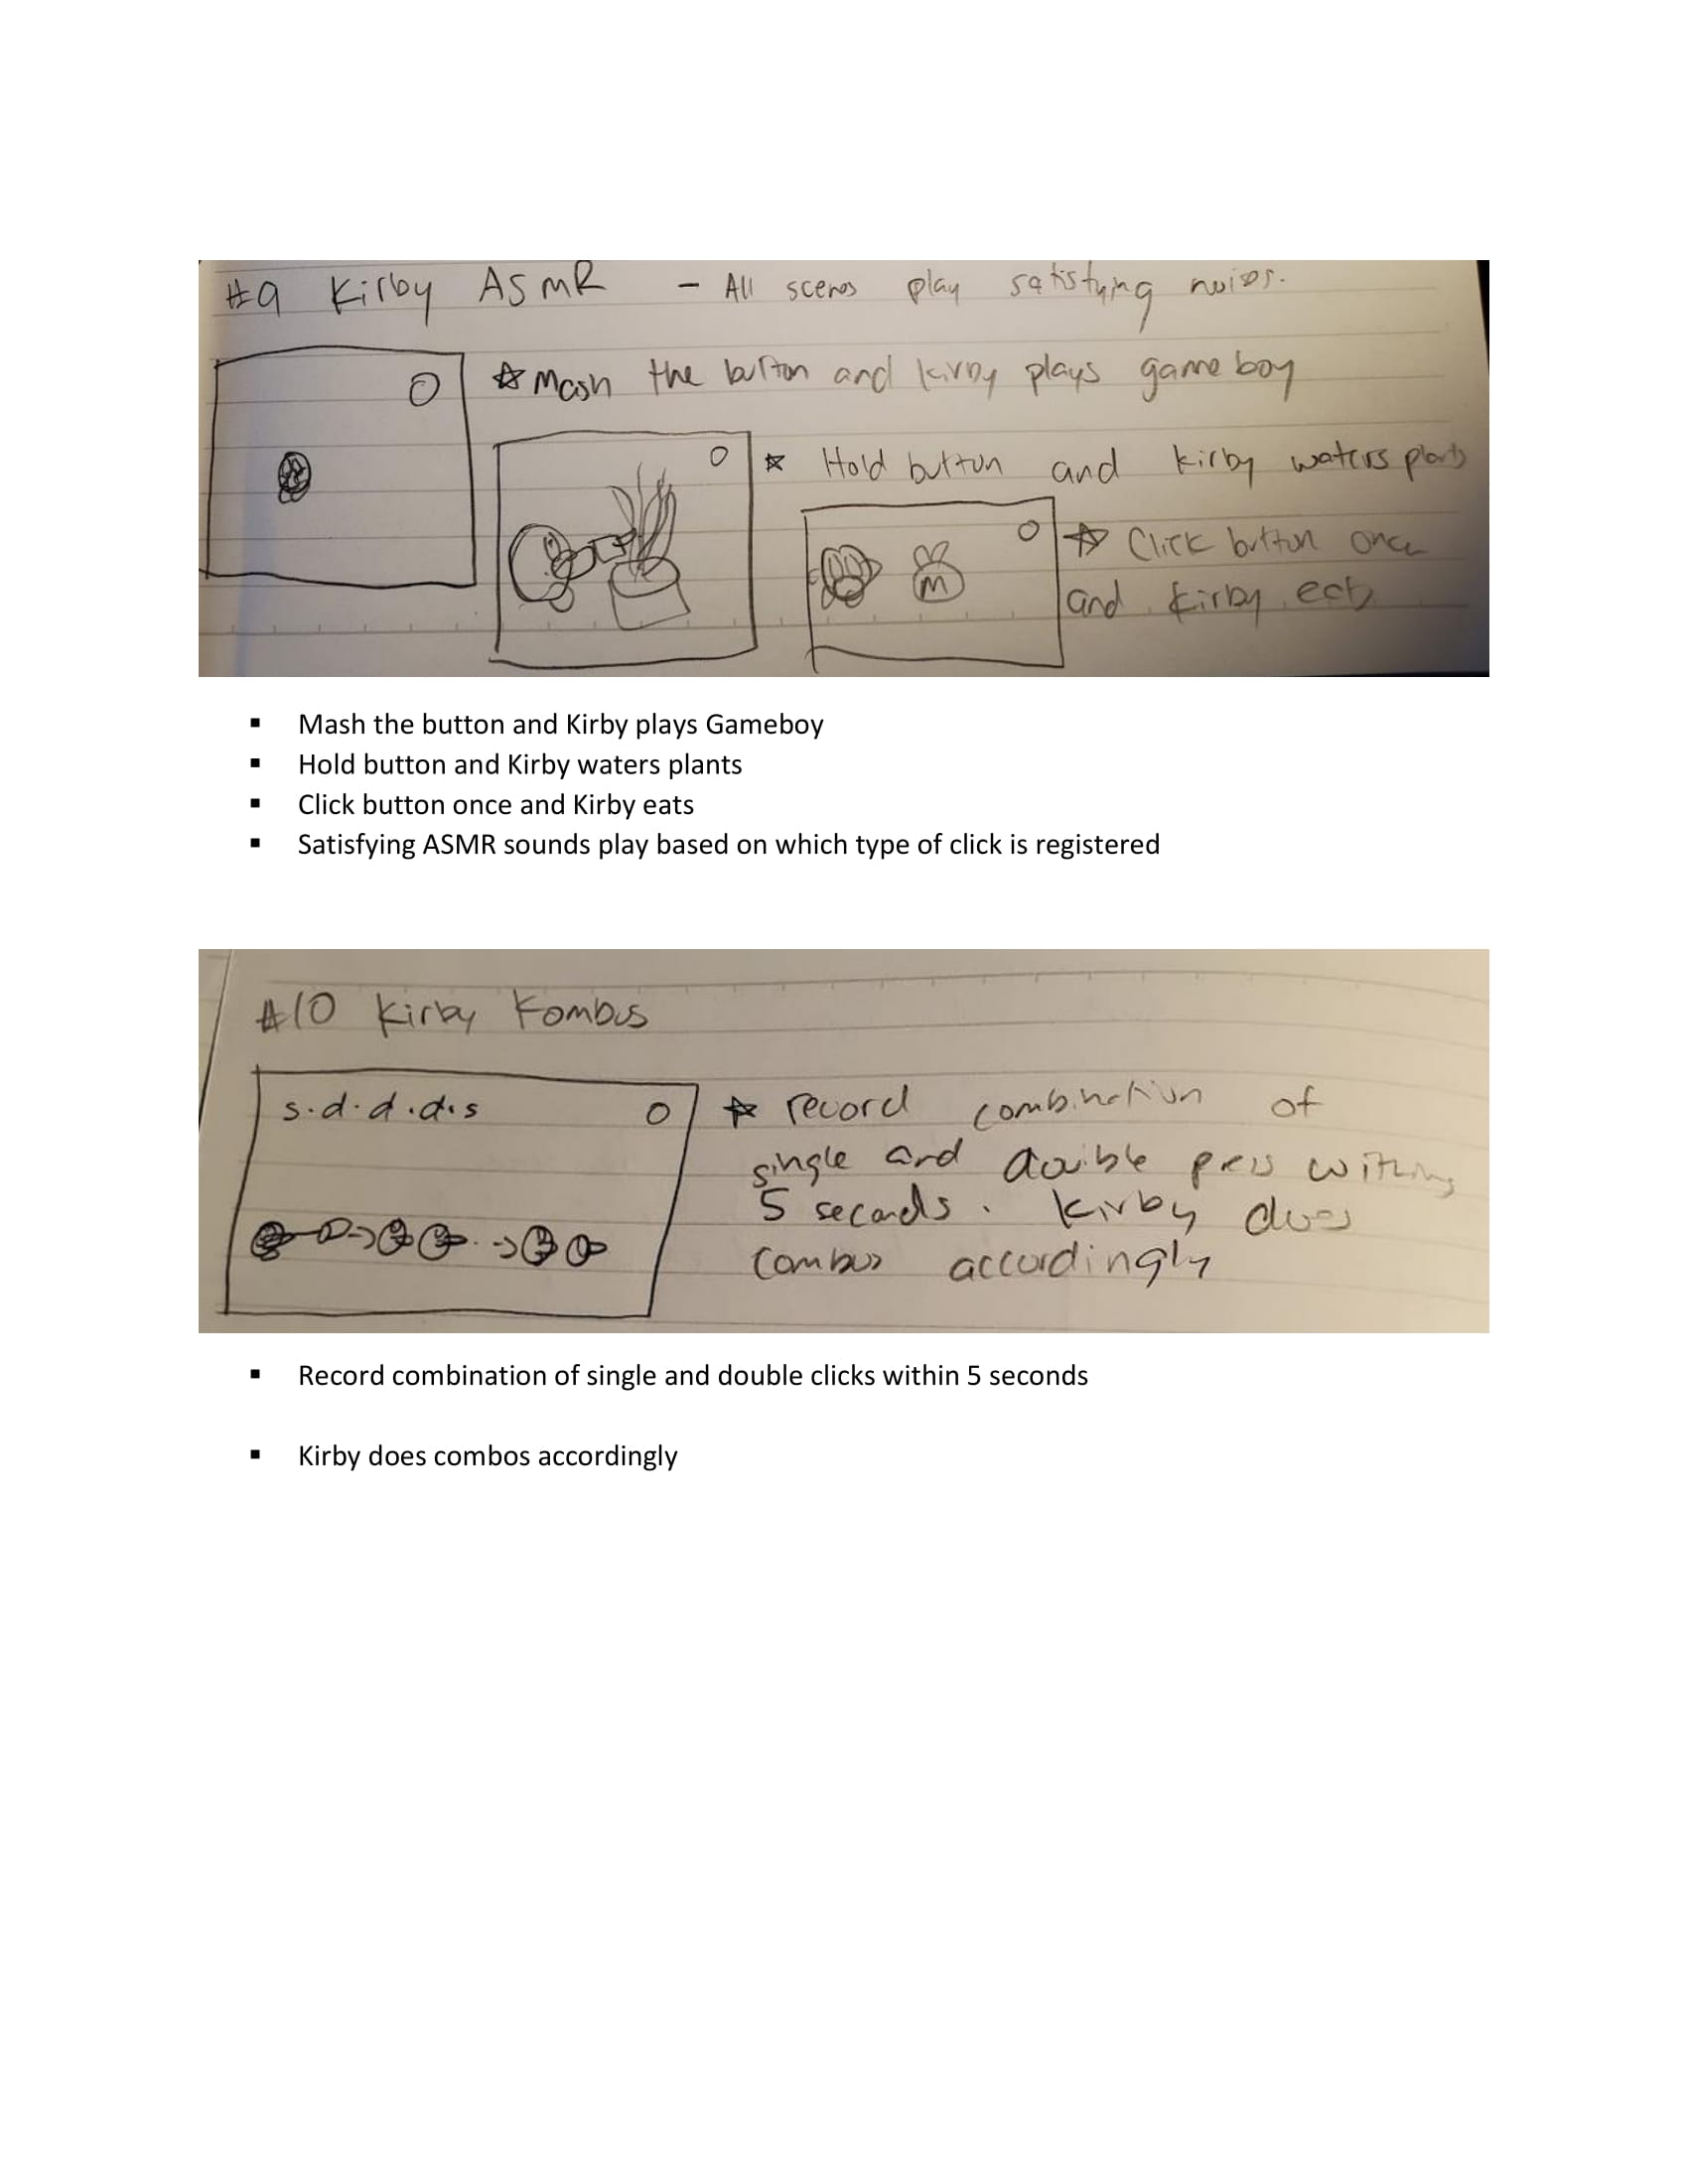 #9 Kirby ASMR - All scenes play satisfying noises.
☆ Mash the button and kirby plays gameboy
☆ Hold button and kirby waters plants
☆ Click button once
and kirby eats
M
▪ Mash the button and Kirby plays Gameboy
▪ Hold button and Kirby waters plants
▪ Click button once and Kirby eats
▪ Satisfying ASMR sounds play based on which type of click is registered
#10 Kirby Kombos
s.d.d.d.s
☆ record combination of
single and double press within
5 seconds. Kirby does
combos accordingly
▪ Record combination of single and double clicks within 5 seconds
▪ Kirby does combos accordingly